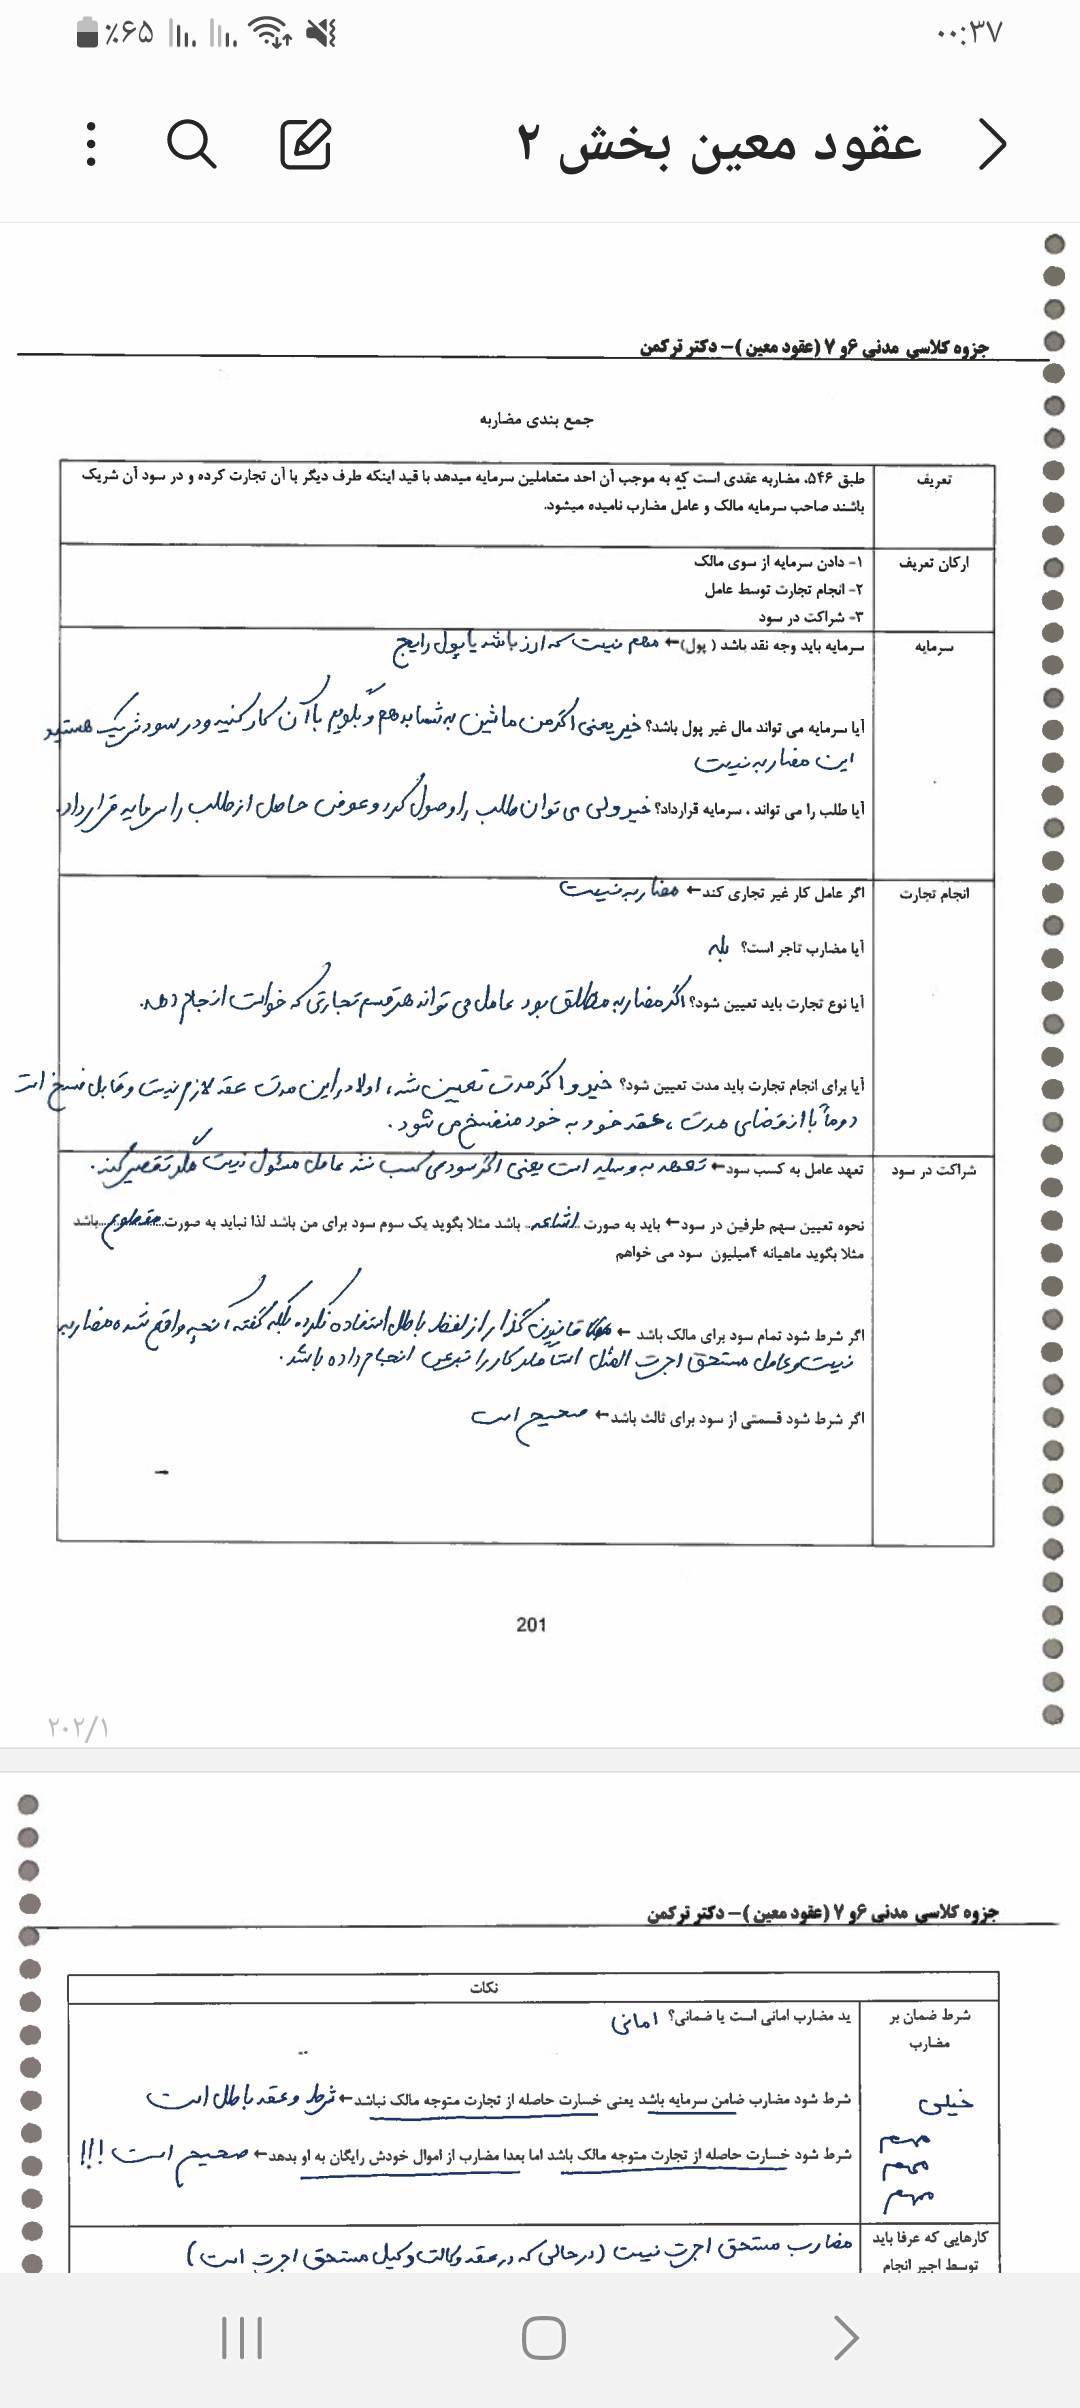 ٪۶۵ ۰۰:۳۷
عقود معین بخش ۲
جزوه کلاسی مدنی ۶و ۷ (عقود معین )– دکتر ترکمن
جمع بندی مضاربه
تعریف
طبق ۵۴۶، مضاربه عقدی است که به موجب آن احد متعاملین سرمایه میدهد با قید اینکه طرف دیگر با آن تجارت کرده و در سود آن شریک
باشند صاحب سرمایه مالک و عامل مضارب نامیده میشود.
ارکان تعریف
۱- دادن سرمایه از سوی مالک
۲- انجام تجارت توسط عامل
۳- شراکت در سود
سرمایه
سرمایه باید وجه نقد باشد ( پول)← مهم نیست که ارز باشد یا پول رایج
آیا سرمایه می تواند مال غیر پول باشد؟ خیر یعنی اگر من ماشین به شما بدهم و بگویم با آن کار کنید و در سود شریک هستید
این مضاربه نیست
آیا طلب را می تواند ، سرمایه قرارداد؟ خیر ولی می توان طلب را وصول کرد و عوض حاصل از طلب را سرمایه قرار داد.
انجام تجارت
اگر عامل کار غیر تجاری کند← مضاربه نیست
آیا مضارب تاجر است؟ بله
آیا نوع تجارت باید تعیین شود؟ اگر مضاربه مطلق بود عامل می تواند هر قسم تجارتی که خواست انجام دهد.
آیا برای انجام تجارت باید مدت تعیین شود؟ خیر و اگر مدت تعیین شد، اولا در این مدت عقد لازم نیست و قابل فسخ است
دوماً با انقضای مدت، عقد خود به خود منفسخ می شود.
شراکت در سود
تعهد عامل به کسب سود← تعهد به وسیله است یعنی اگر سودی کسب نشد عامل مسئول نیست مگر تقصیر کند.
نحوه تعیین سهم طرفین در سود← باید به صورت اشاعه باشد مثلا بگوید یک سوم سود برای من باشد لذا نباید به صورت مقطوع باشد
مثلا بگوید ماهیانه ۴میلیون سود می خواهم
اگر شرط شود تمام سود برای مالک باشد ← قانون گذار از لفظ باطل استفاده نکرده بلکه گفته آنچه واقع شده مضاربه
نیست و عامل مستحق اجرت المثل است مگر کار را تبرعی انجام داده باشد.
اگر شرط شود قسمتی از سود برای ثالث باشد← صحیح است
201
۲۰۲/۱
جزوه کلاسی مدنی ۶و ۷ (عقود معین )– دکتر ترکمن
نکات
شرط ضمان بر
مضارب
خیلی
مهم
مهم
مهم
ید مضارب امانی است یا ضمانی؟ امانی
شرط شود مضارب ضامن سرمایه باشد یعنی خسارت حاصله از تجارت متوجه مالک نباشد← شرط و عقد باطل است
شرط شود خسارت حاصله از تجارت متوجه مالک باشد اما بعدا مضارب از اموال خودش رایگان به او بدهد← صحیح است !!!
کارهایی که عرفا باید
توسط اجیر انجام
مضارب مستحق اجرت نیست (در حالی که در عقد وکالت وکیل مستحق اجرت است)